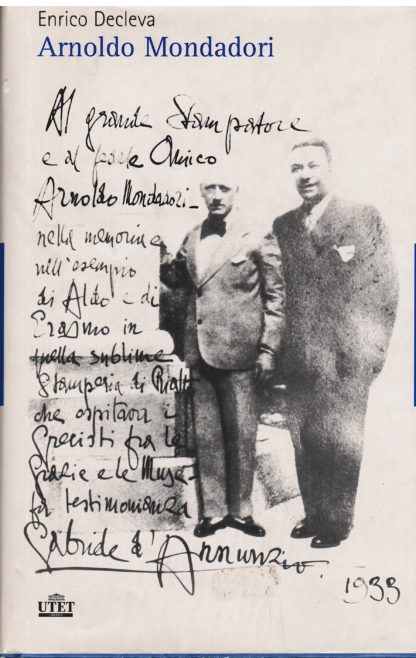 Enrico Decleva
Arnoldo Mondadori
Al grande Stampatore
e al fedele Amico
Arnoldo Mondadori_
nella memoria e
nell'esempio
di Aldo e di
Erasmo in
quella sublime
Stamperia di Rialto
che ospitava i
Grecisti fra le
Grazie e le Muse_
testimonianza
Gabriele d'Annunzio.
1933
UTET